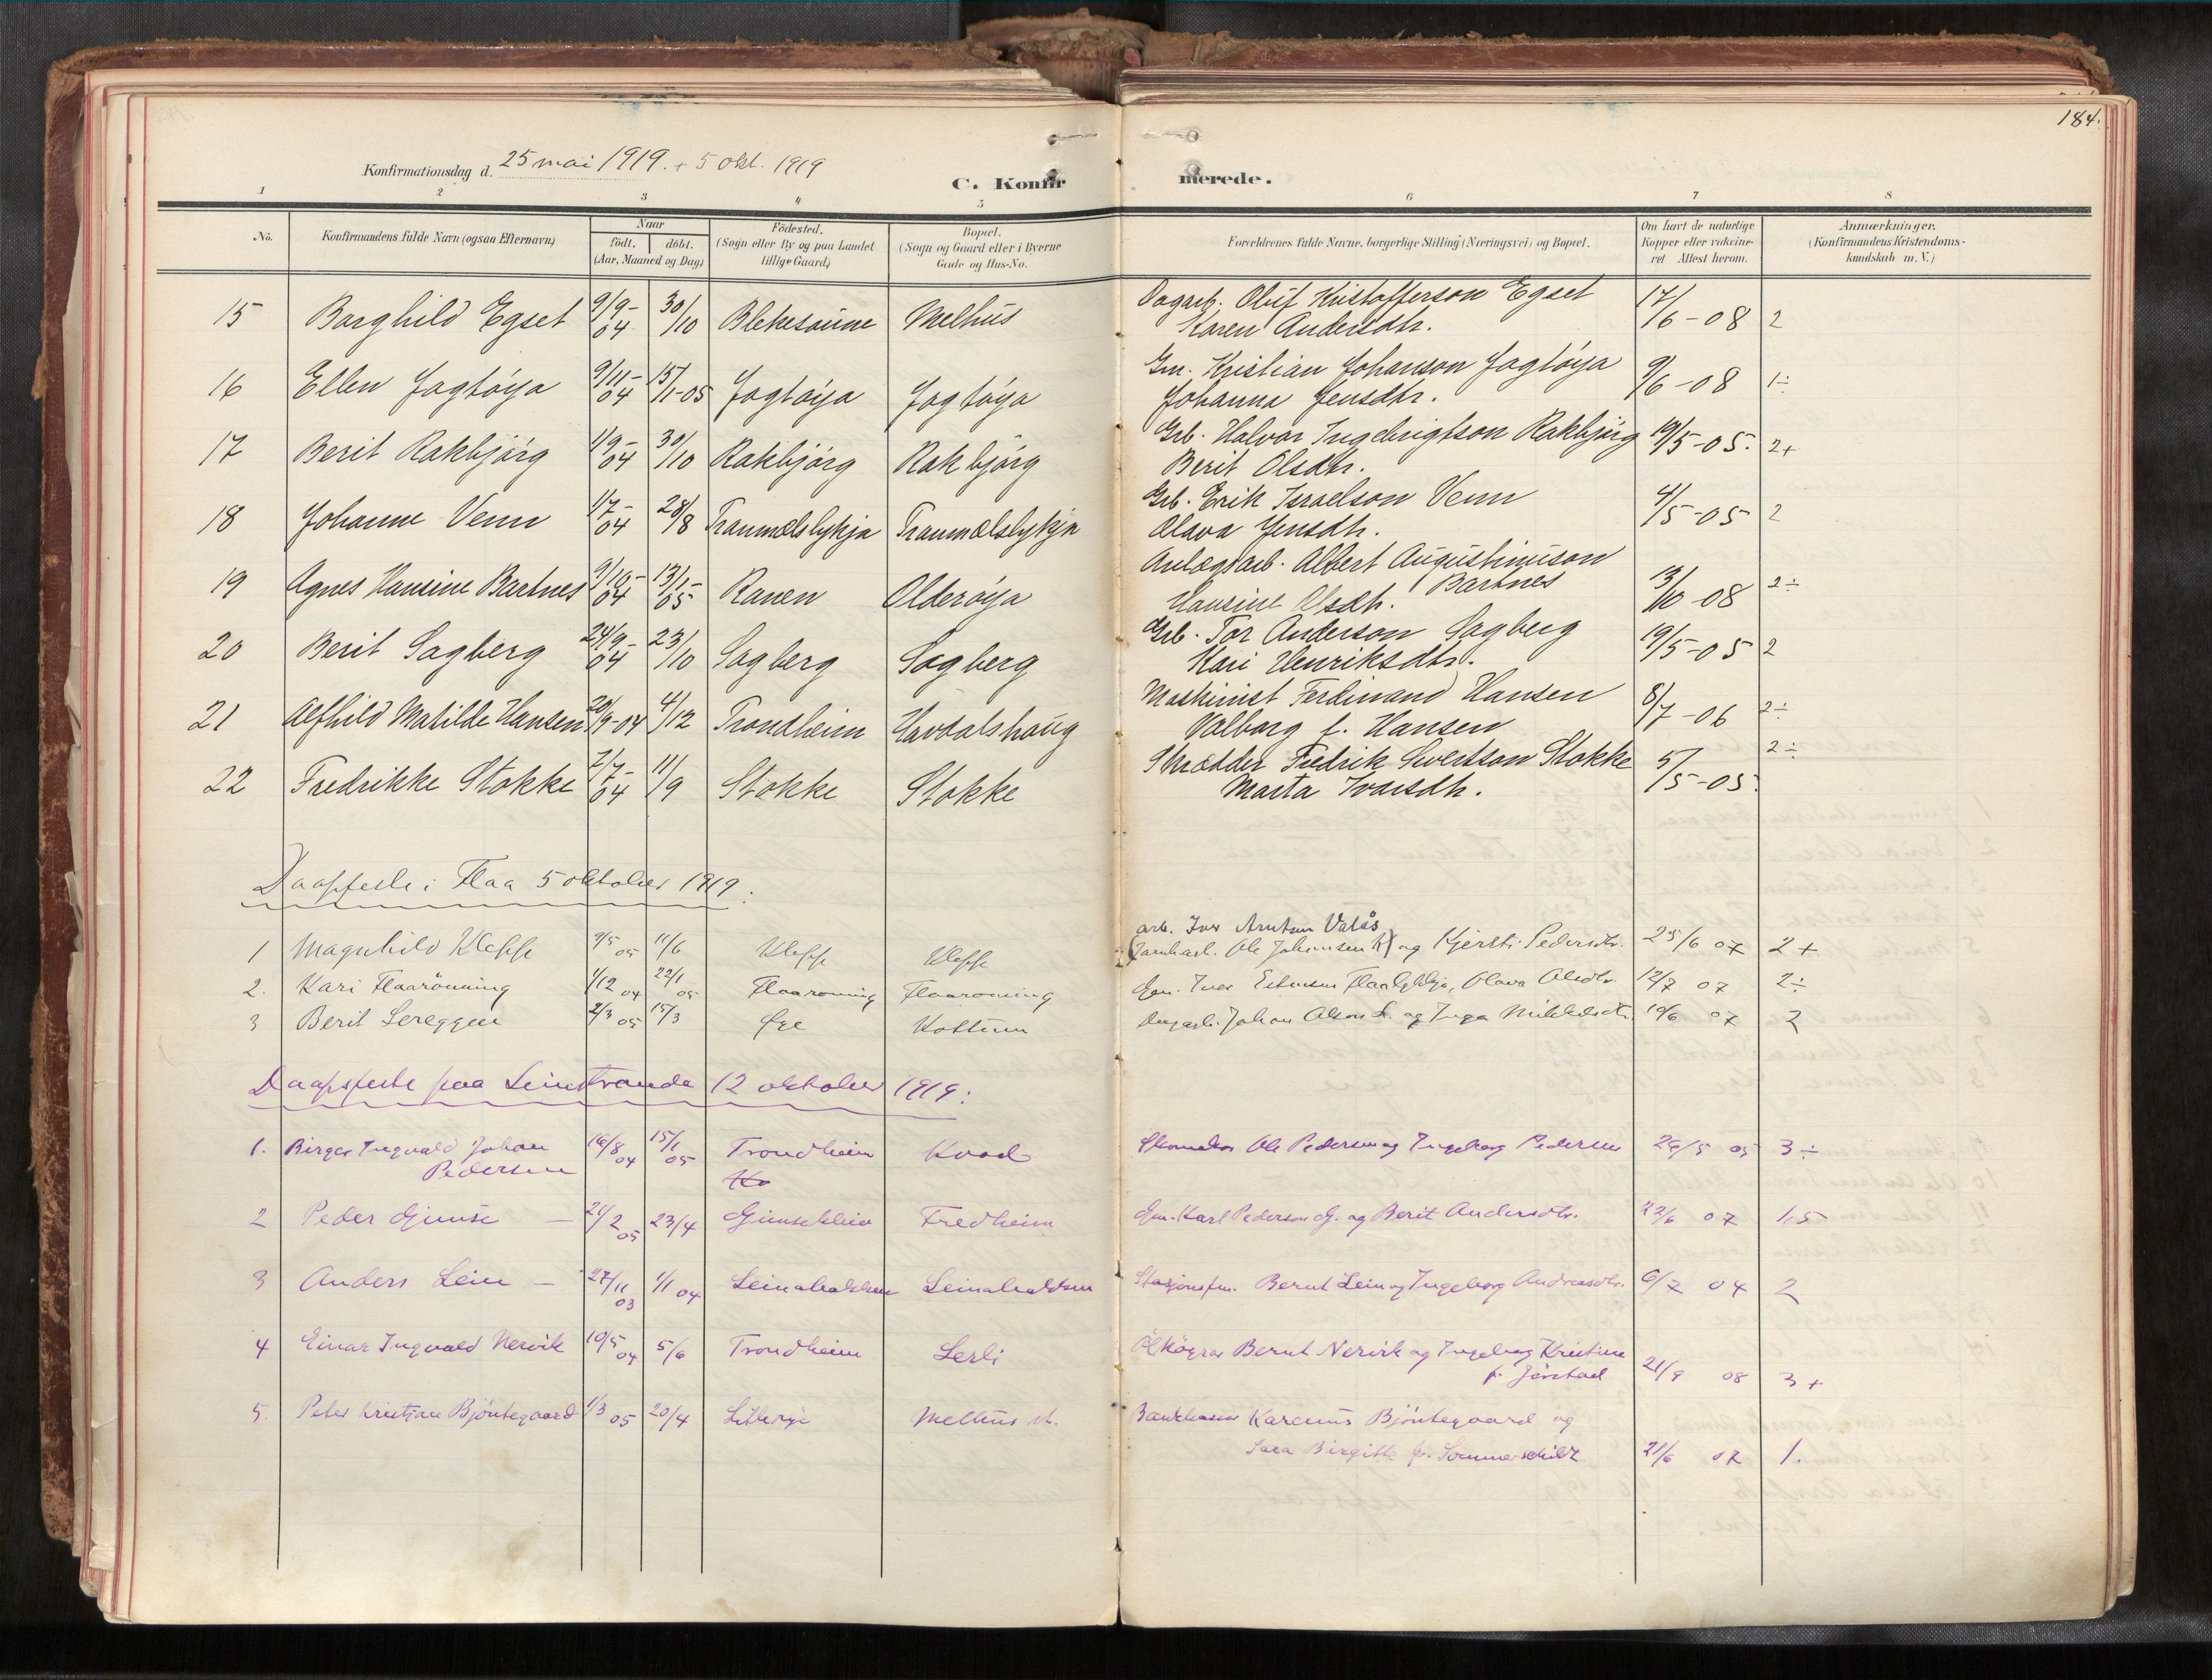 184.
Konfirmationsdag d. 25 mai 1919. + 5 okt. 1919
C. Konfirmerede.
1 2 3 4 5 6 7 8
No. Konfirmandens fulde Navn (ogsaa Efternavn) Naar födt. döbt. (Aar, Maaned og Dag) Födested. (Sogn eller By og paa Landet tillige Gaard) Bopæl. (Sogn og Gaard eller i Byerne Gade og Hus-No. Forældrenes fulde Navne, borgerlige Stilling (Næringsvei) og Bopæl. Om havt de naturlige Kopper eller vaccineret Attest herom. Anmærkninger. (Konfirmandens Kristendomskundskab m. V.)
15 Borghild Egset 9/9-04 30/10 Blekesaune Melhus Dagarb. Oluf Kristofferson Egset 17/6-08 2
Karen Andersdtr.
16 Ellen Jagtöya 9/11-04 15/1-05 Jagtöya Jagtöya Gm. Kristian Johanson Jagtöya 9/6-08 1÷
Johanna Jensdtr.
17 Berit Rakbjörg 1/9-04 30/10 Rakbjörg Rakbjörg Grb. Halvor Ingebrigtson Rakbjörg 19/5-05. 2+
Berit Olsdtr.
18 Johanne Venn 1/7-04 28/8 Traumælslykja Traumælslykja Grb. Erik Israelson Venn 4/5-05 2
Olava Jensdtr.
19 Agnes Hansine Bartnes 9/10-04 13/1-05 Ranen Olderöya Anlægsarb. Albert Augustinuson
Bartnes 13/10-08 2÷
Hansine Olsdtr.
20 Berit Sagberg 24/9-04 23/10 Sagberg Sagberg Grb. Tor Anderson Sagberg 19/5-05 2
Kari Henriksdtr.
21 Alfhild Matilde Hansen 20/9-04 4/12 Trondheim Havdalshaug Maskinist Ferdinand Hansen 8/7-06 2÷
Valborg f. Hansen
22 Fredrikke Stokke 7/7-04 11/9 Stokke Stokke Skrædder Fredrik Sivertson Stokke 5/5-05. 2÷
Marta Ivarsdtr.
Daapfeste i Flaa 5 oktober 1919:
arb. Iver Arntsen Valås
1 Magnhild Kleppe 9/5 05 11/6 Kleppe Kleppe Ole Johansen K) og Kjersti Pedersdtr. 25/6 07 2+
2. Kari Flaarönning 1/12 04 22/1 05 Flaaronning Flaaronning Gm. Iver Estensen Flaalykkja, Olava Olsdtr. 12/7 07 2÷
3 Berit Lereggen 2/3 05 15/3 Øye Kottum Johan Olsen L. og Inga Mikkelsdtr. 10/6 07 2
Daapsfeste paa Leinstranda 12 oktober 1919:
1. Birger Ingvald Johan 16/8 04 15/1 05 Trondheim Kvad Skomaker Ole Pedersen og Ingeborg Pedersen 26/5 05 3÷
Pedersen
2 Peder Gimse — 21/2 05 23/4 Gimsekleiv Fredheim Gm. Karl Pederson G. og Berit Andersdtr. 22/6 07 1,5
3 Anders Lein — 27/11 03 1/1 04 Leinabakken Leinabakken Stasjonsfm. Bernt Lein og Ingeborg Andreasdtr. 6/7 04 2
4 Einar Ingvald Nervik 10/5 04 5/6 Trondheim Lerli Bernt Nervik og Ingeborg Kristine
f. Jörstad 21/9 08 3+
5. Peter Kristian Bjöntegaard 1/3 05 20/4 Melhus st. Bankkasserer Karenus Bjöntegaard og
Sara Birgitte f. Sommerschildt 21/6 07 1.